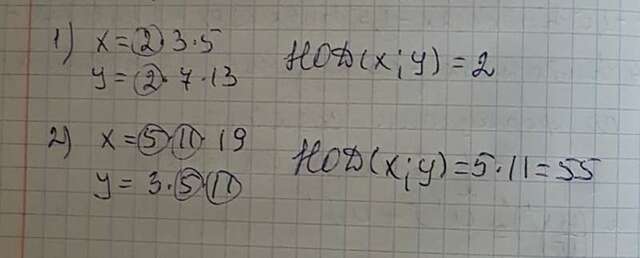 1) x = 2 · 3 · 5
y = 2 · 7 · 13
НОД(x; y) = 2
2) x = 5 · 11 · 19
y = 3 · 5 · 11
НОД(x; y) = 5 · 11 = 55